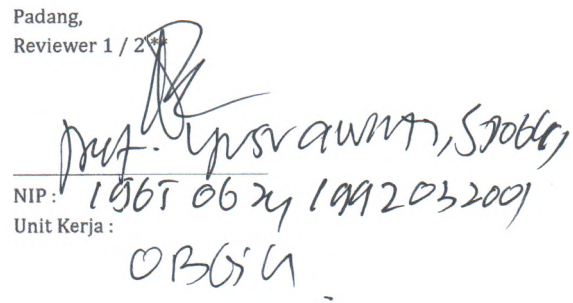 Padang,
Reviewer 1 / 2 **
Prof. Yusrawati, SpOG(K)
NIP : 196506241992032001
Unit Kerja :
OBGIN